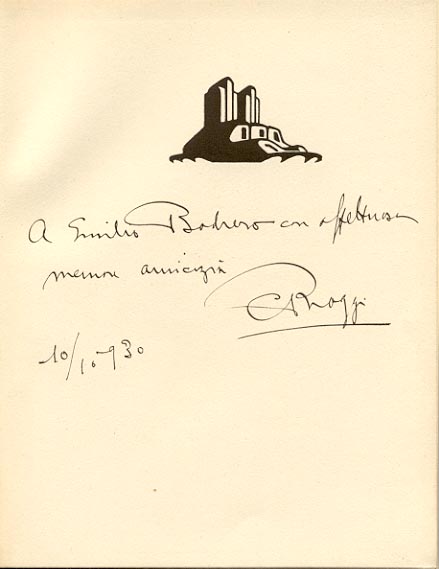 A Emilio Bodrero con affettuosa
memore amicizia
10/10 930